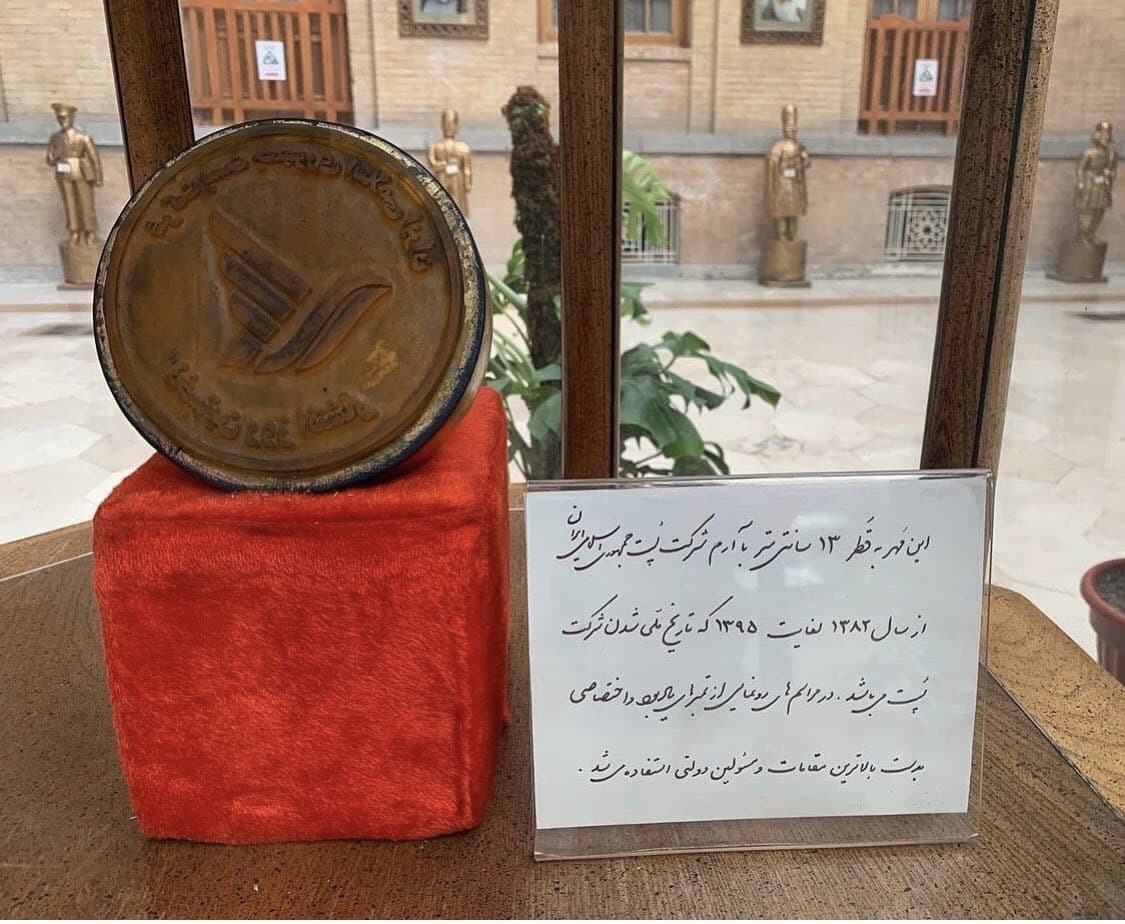 این مُهر به قُطر ۱۳ سانتی‌متر با آرم شرکت پُست جمهوری اسلامی ایران
از سال ۱۳۸۲ لغایت ۱۳۹۵ که تاریخ ملّی شدن شرکت
پُست می‌باشد. در مراسم‌های رونمایی از تمبرهای یادبود و اختصاصی
بدست بالاترین مقامات و مسئولین دولتی استفاده می‌شد.